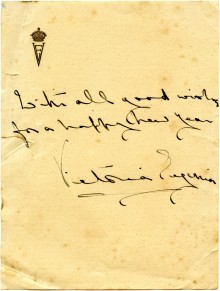 With all good wishes
for a happy New Year
Victoria Eugenia